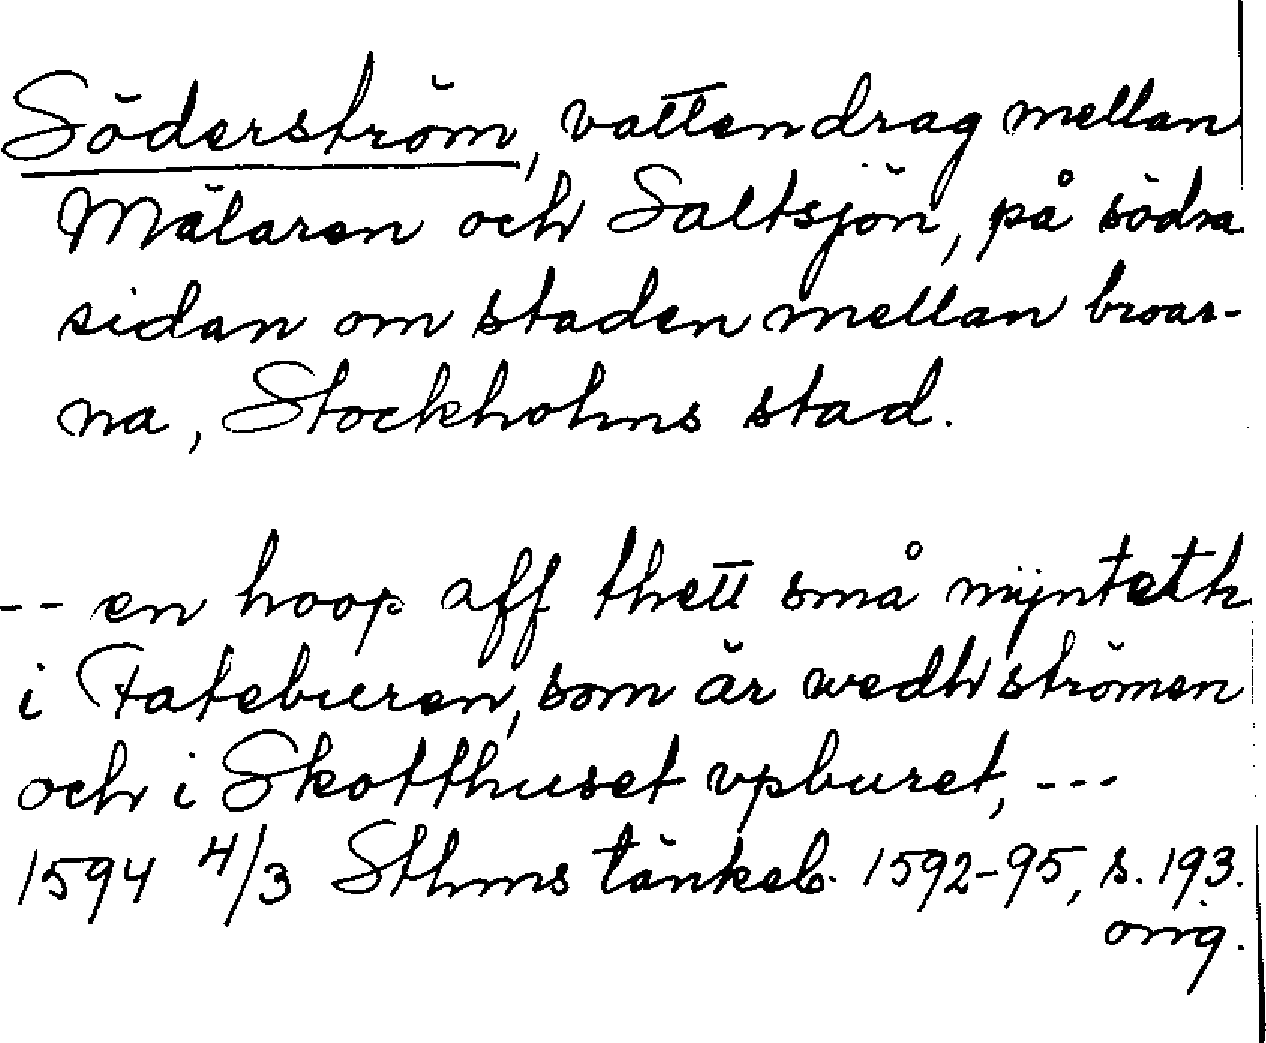 Söderström, vattendrag mellan
Mälaren och Saltsjön, på södra
sidan om staden mellan broar-
na, Stockholms stad.
-- en hoop aff thett små mÿnteth
i Fatebueren, som är wedh strömen
och i Skotthuset vpburet, ---
1594 4/3 Sthms tänkeb. 1592-95, s. 193.
orig.